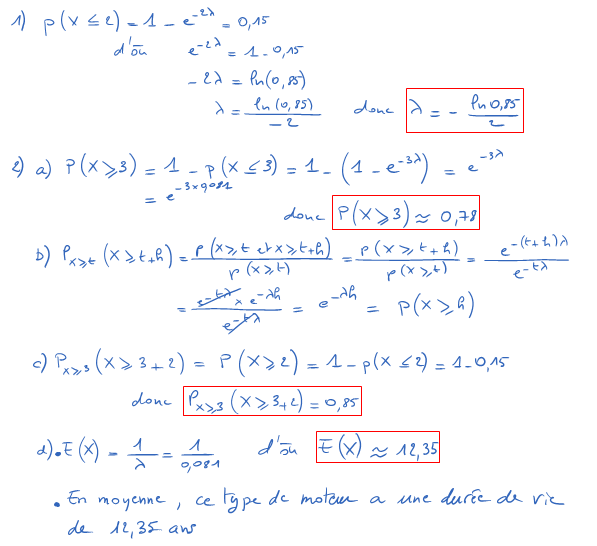 1) p(X ≤ 2) = 1 - e^{-2λ} = 0,15
d'où e^{-2λ} = 1 - 0,15
-2λ = ln(0,85)
λ = ln(0,85)/-2 donc λ = - ln 0,85/2
2) a) P(X ≥ 3) = 1 - p(X ≤ 3) = 1 - (1 - e^{-3λ}) = e^{-3λ}
= e^{-3×0,081}
donc P(X ≥ 3) ≈ 0,78
b) P_{X≥t}(X ≥ t+h) = p(X ≥ t et X ≥ t+h)/p(X ≥ t) = p(X ≥ t+h)/p(X ≥ t) = e^{-(t+h)λ}/e^{-tλ}
= e^{-tλ} × e^{-λh}/e^{-tλ} = e^{-λh} = P(X ≥ h)
c) P_{X≥3}(X ≥ 3+2) = P(X ≥ 2) = 1 - p(X ≤ 2) = 1 - 0,15
donc P_{X≥3}(X ≥ 3+2) = 0,85
d) • E(X) = 1/λ = 1/0,081 d'où E(X) ≈ 12,35
• En moyenne, ce type de moteur a une durée de vie
de 12,35 ans